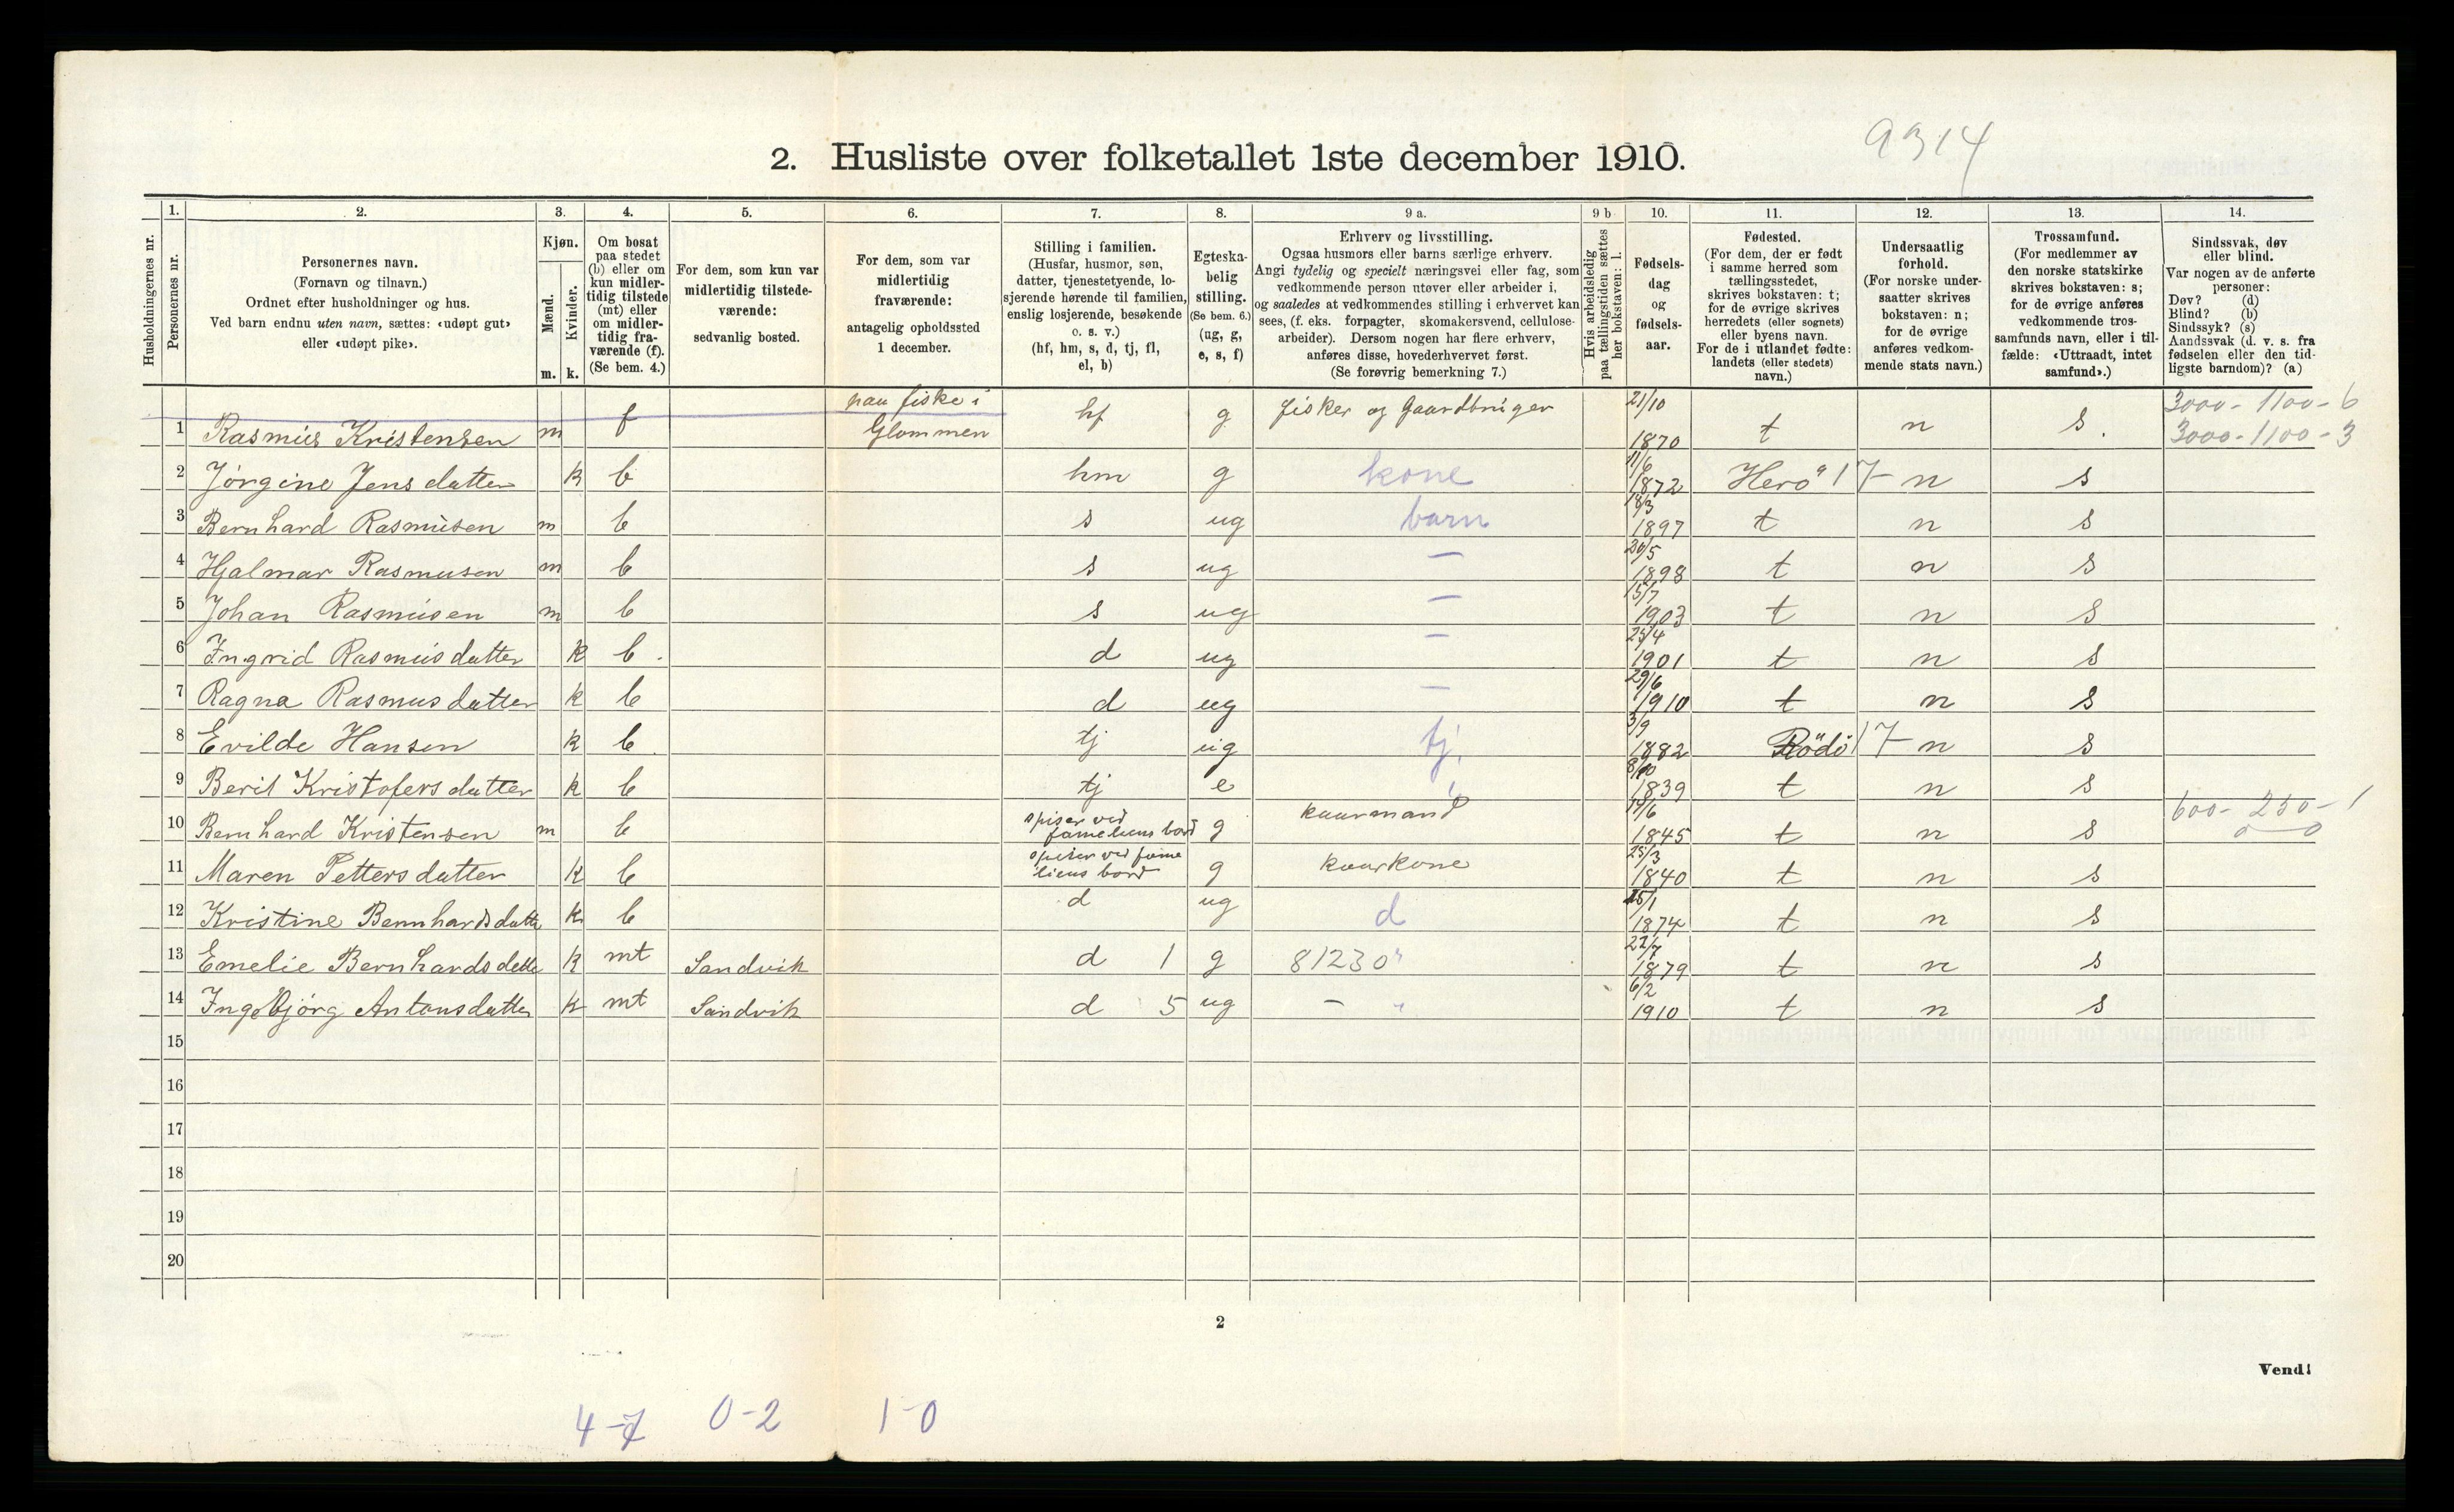 9314
2. Husliste over folketallet 1ste december 1910.
Husholdningernes nr.
1. Personernes nr.
2. Personernes navn.
(Fornavn og tilnavn.)
Ordnet efter husholdninger og hus.
Ved barn endnu uten navn, sættes: «udøpt gut»
eller «udøpt pike».
3. Kjøn.
Mænd. m.
Kvinder. k.
4. Om bosat
paa stedet
(b) eller om
kun midler-
tidig tilstede
(mt) eller
om midler-
tidig fra-
værende (f).
(Se bem. 4.)
5. For dem, som kun var
midlertidig tilstede-
værende:
sedvanlig bosted.
6. For dem, som var
midlertidig
fraværende:
antagelig opholdssted
1 december.
7. Stilling i familien.
(Husfar, husmor, søn,
datter, tjenestetyende, lo-
sjerende hørende til familien,
enslig losjerende, besøkende
o. s. v.)
(hf, hm, s, d, tj, fl,
el, b)
8. Egteska-
belig
stilling.
(Se bem. 6.)
(ug, g,
e, s, f)
9 a. Erhverv og livsstilling.
Ogsaa husmors eller barns særlige erhverv.
Angi tydelig og specielt næringsvei eller fag, som
vedkommende person utøver eller arbeider i,
og saaledes at vedkommendes stilling i erhvervet kan
sees, (f. eks. forpagter, skomakersvend, cellulose-
arbeider). Dersom nogen har flere erhverv,
anføres disse, hovederhvervet først.
(Se forøvrig bemerkning 7.)
9 b Hvis arbeidsledig
paa tællingstiden sættes
her bokstaven: l.
10. Fødsels-
dag
og
fødsels-
aar.
11. Fødested.
(For dem, der er født
i samme herred som
tællingsstedet,
skrives bokstaven: t;
for de øvrige skrives
herredets (eller sognets)
eller byens navn.
For de i utlandet fødte:
landets (eller stedets)
navn.)
12. Undersaatlig
forhold.
(For norske under-
saatter skrives
bokstaven: n;
for de øvrige
anføres vedkom-
mende stats navn.)
13. Trossamfund.
(For medlemmer av
den norske statskirke
skrives bokstaven: s;
for de øvrige anføres
vedkommende tros-
samfunds navn, eller i til-
fælde: «Uttraadt, intet
samfund».)
14. Sindssvak, døv
eller blind.
Var nogen av de anførte
personer:
Døv? (d)
Blind? (b)
Sindssyk? (s)
Aandssvak (d. v. s. fra
fødselen eller den tid-
ligste barndom)? (a)
1 Rasmus Kristensen m f paa fiske i Glommen hf g fisker og Gaardbruger 21/10 1870 t n s. 3000-1100-6
3000-1100-3
2 Jørgine Jensdatter k b hm g kone 11/6 1872 Herö 17 n s
3 Bernhard Rasmusen m b s ug barn 18/3 1897 t n s
4 Hjalmar Rasmusen m b s ug — 30/5 1898 t n s
5 Johan Rasmusen m b s ug — 15/7 1903 t n s
6 Ingrid Rasmusdatter k b. d ug — 25/4 1901 t n s
7 Ragna Rasmusdatter k b d ug — 29/6 1910 t n s
8 Evilde Hansen k b. tj ug tj. 3/9 1882 Rödö 17 n s
9 Berit Kristofersdatter k b tj e " 8/10 1839 t n s
10 Bernhard Kristensen m b spiser ved fameliens bord g kaarmand 14/6 1845 t n s 600-250-1
0 0
11 Maren Pettersdatter k b spiser ved fame liens bord g kaarkone 25/3 1840 t n s
12 Kristine Bernhardsdatte k b d ug d 15/1 1874 t n s
13 Emelie Bernhardsdatte k mt Sandvik d 1 g 81230 " 22/7 1879 t n s
14 Ingebjörg Antonsdatter k mt Sandvik d 5 ug — " 6/2 1910 t n s
15
16
17
18
19
20
2
Vend!
4-7 0-2 1-0